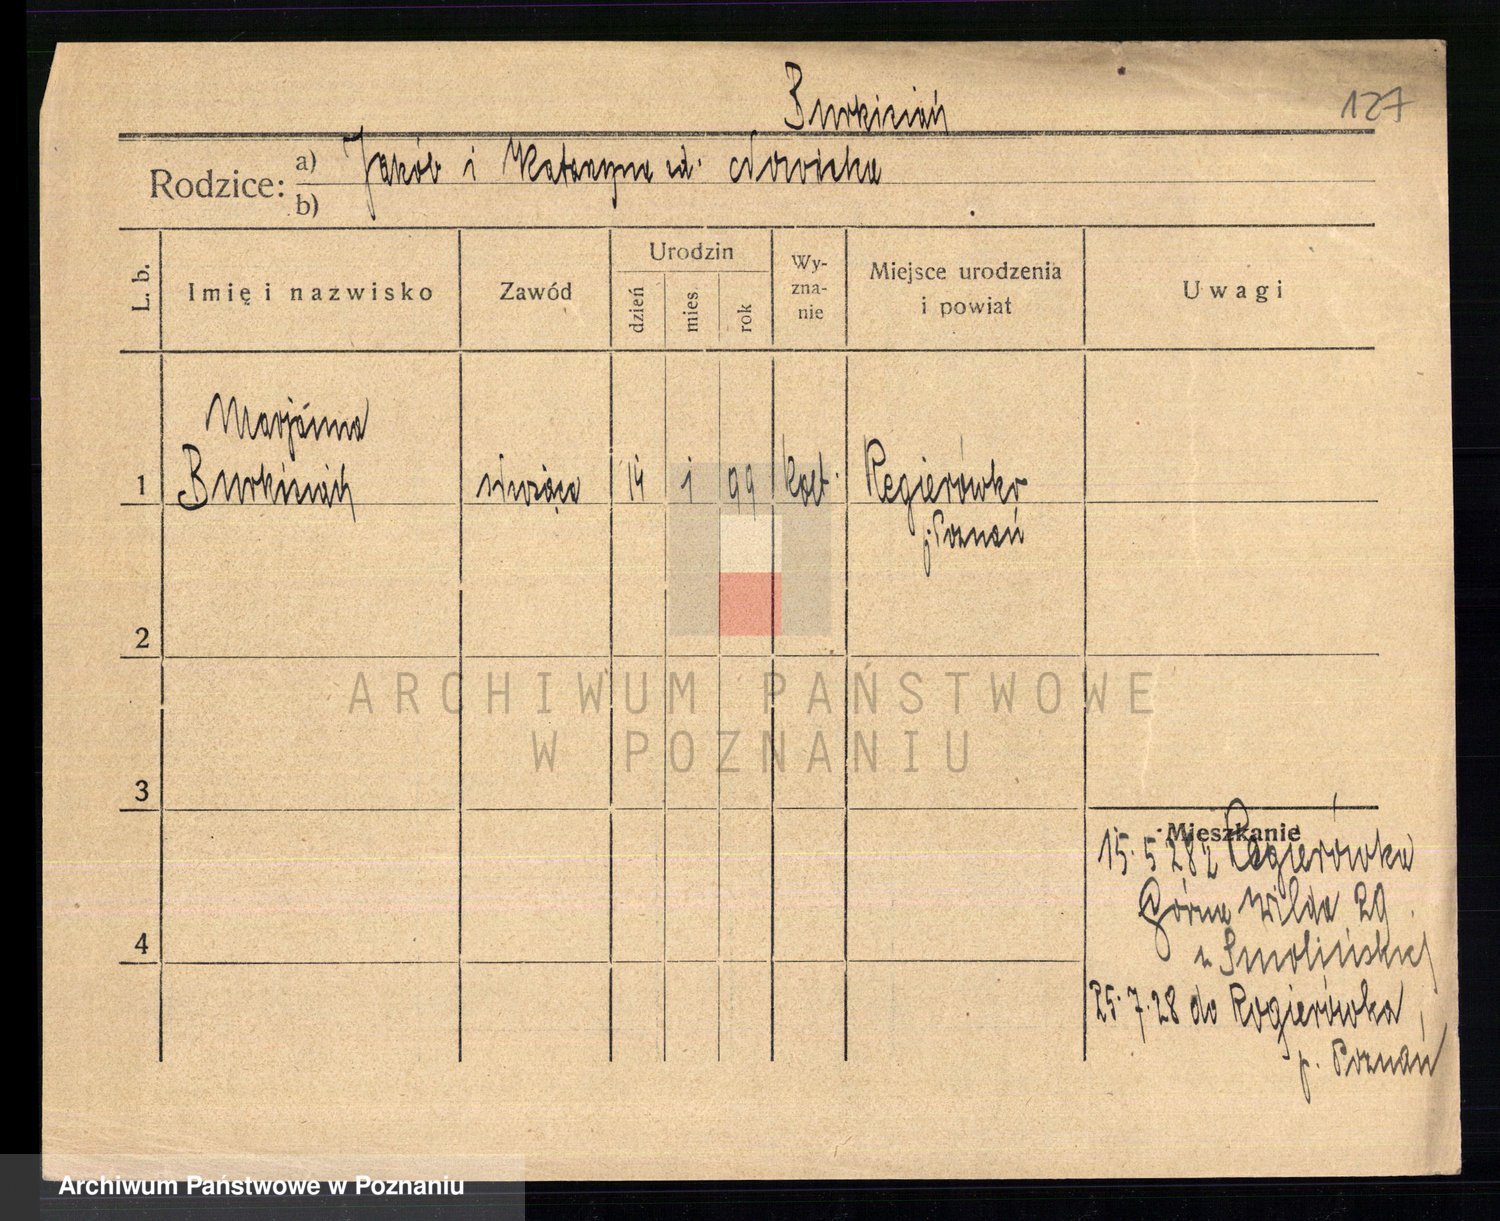 Burkiciak
127
Rodzice: a) Jakób i Katarzyna ud. Nowicka
b)
L. b.
Imię i nazwisko
Zawód
Urodzin
dzień
mies.
rok
Wy-
zna-
nie
Miejsce urodzenia
i powiat
Uwagi
Marjanna
1 Burkiciak służąca 14 1 99 kat. Rogierówko
p. Poznań
2
ARCHIWUM PAŃSTWOWE
W POZNANIU
3
Mieszkanie
15.5 28 z Rogierówka
Górna Wilda 29
u Smolińskiej
4
25.7.28 do Rogierówka
p. Poznań
Archiwum Państwowe w Poznaniu